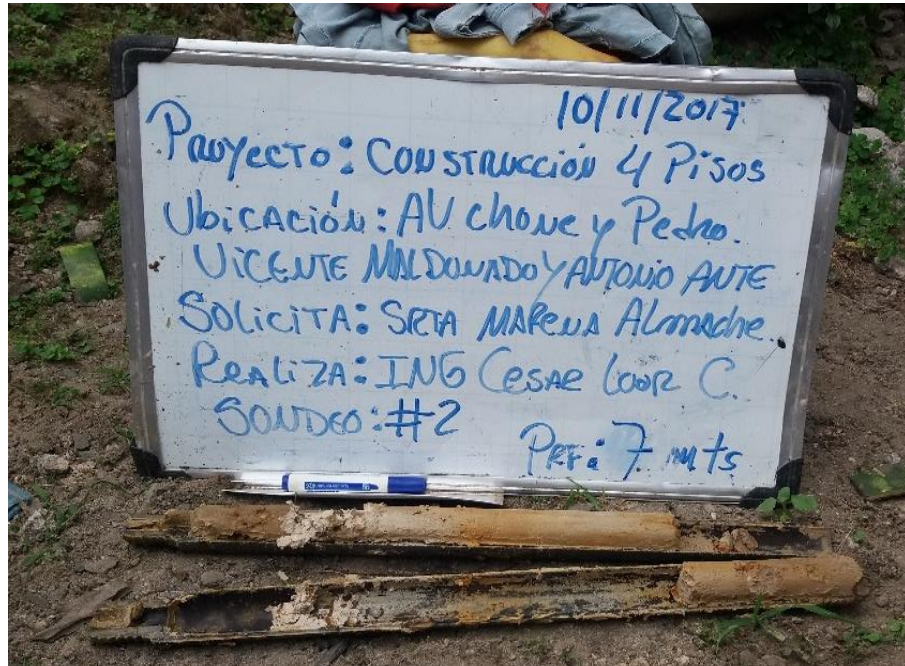 10/11/2017
Proyecto: Construcción 4 Pisos
Ubicación: AV Chone y Pedro.
Vicente Maldonado y Antonio Ante
Solicita: Srta Marena Almache.
Realiza: ING Cesar Loor C.
Sondeo: #2
Prf: 7 mts